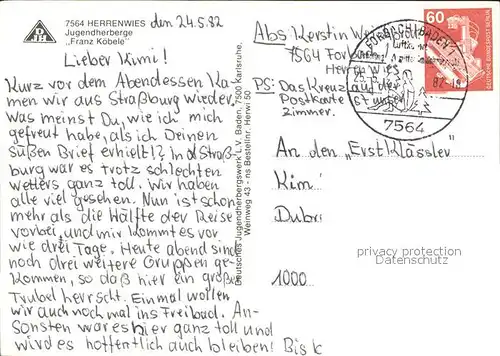 7564 HERRENWIES
Jugendherberge
„Franz Köbele"
den 24.5.82
Lieber Kimi!
Kurz vor dem Abendessen Ka
men wir aus Straßburg wieder.
Was meinst Du, wie ich mich
gefreut habe, als ich Deinen
süßen Brief erhielt!? In Straß-
burg war es trotz schlechten
Wetters ganz toll. Wir haben
alle viel gesehen. Nun ist schon
mehr als die Hälfte der Reise
vorbei, und mir kommt es vor
wie drei Tage. Heute abend sind
noch drei weitere Gruppen ge-
kommen, so daß hier ein großer
Trubel herrscht. Einmal wollen
wir auch noch mal ins Freibad. An-
sonsten war es hier ganz toll und
wird es hoffentlich auch bleiben! Bis
Deutsches Jugendherbergswerk L.V. Baden, 7500 Karlsruhe,
Weinweg 43 - ns Bestellnr. Herwi 50
Abs Kerstin
7564 For
Herrenwies
PS: Das Kreuz auf der
Postkarte ist unser
Zimmer.
FORBACH, BADEN
82-18
7564
60
DEUTSCHE BUNDESPOST BERLIN
An den „Erstklässler"
Kim
Dubr
1000
privacy protection
Datenschutz